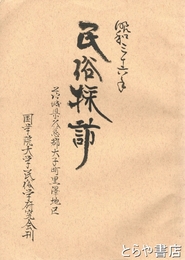 昭和三十六年
民俗探訪
茨城県久慈郡大子町黒沢地区
国学院大学民俗学研究会刊
とらや書店